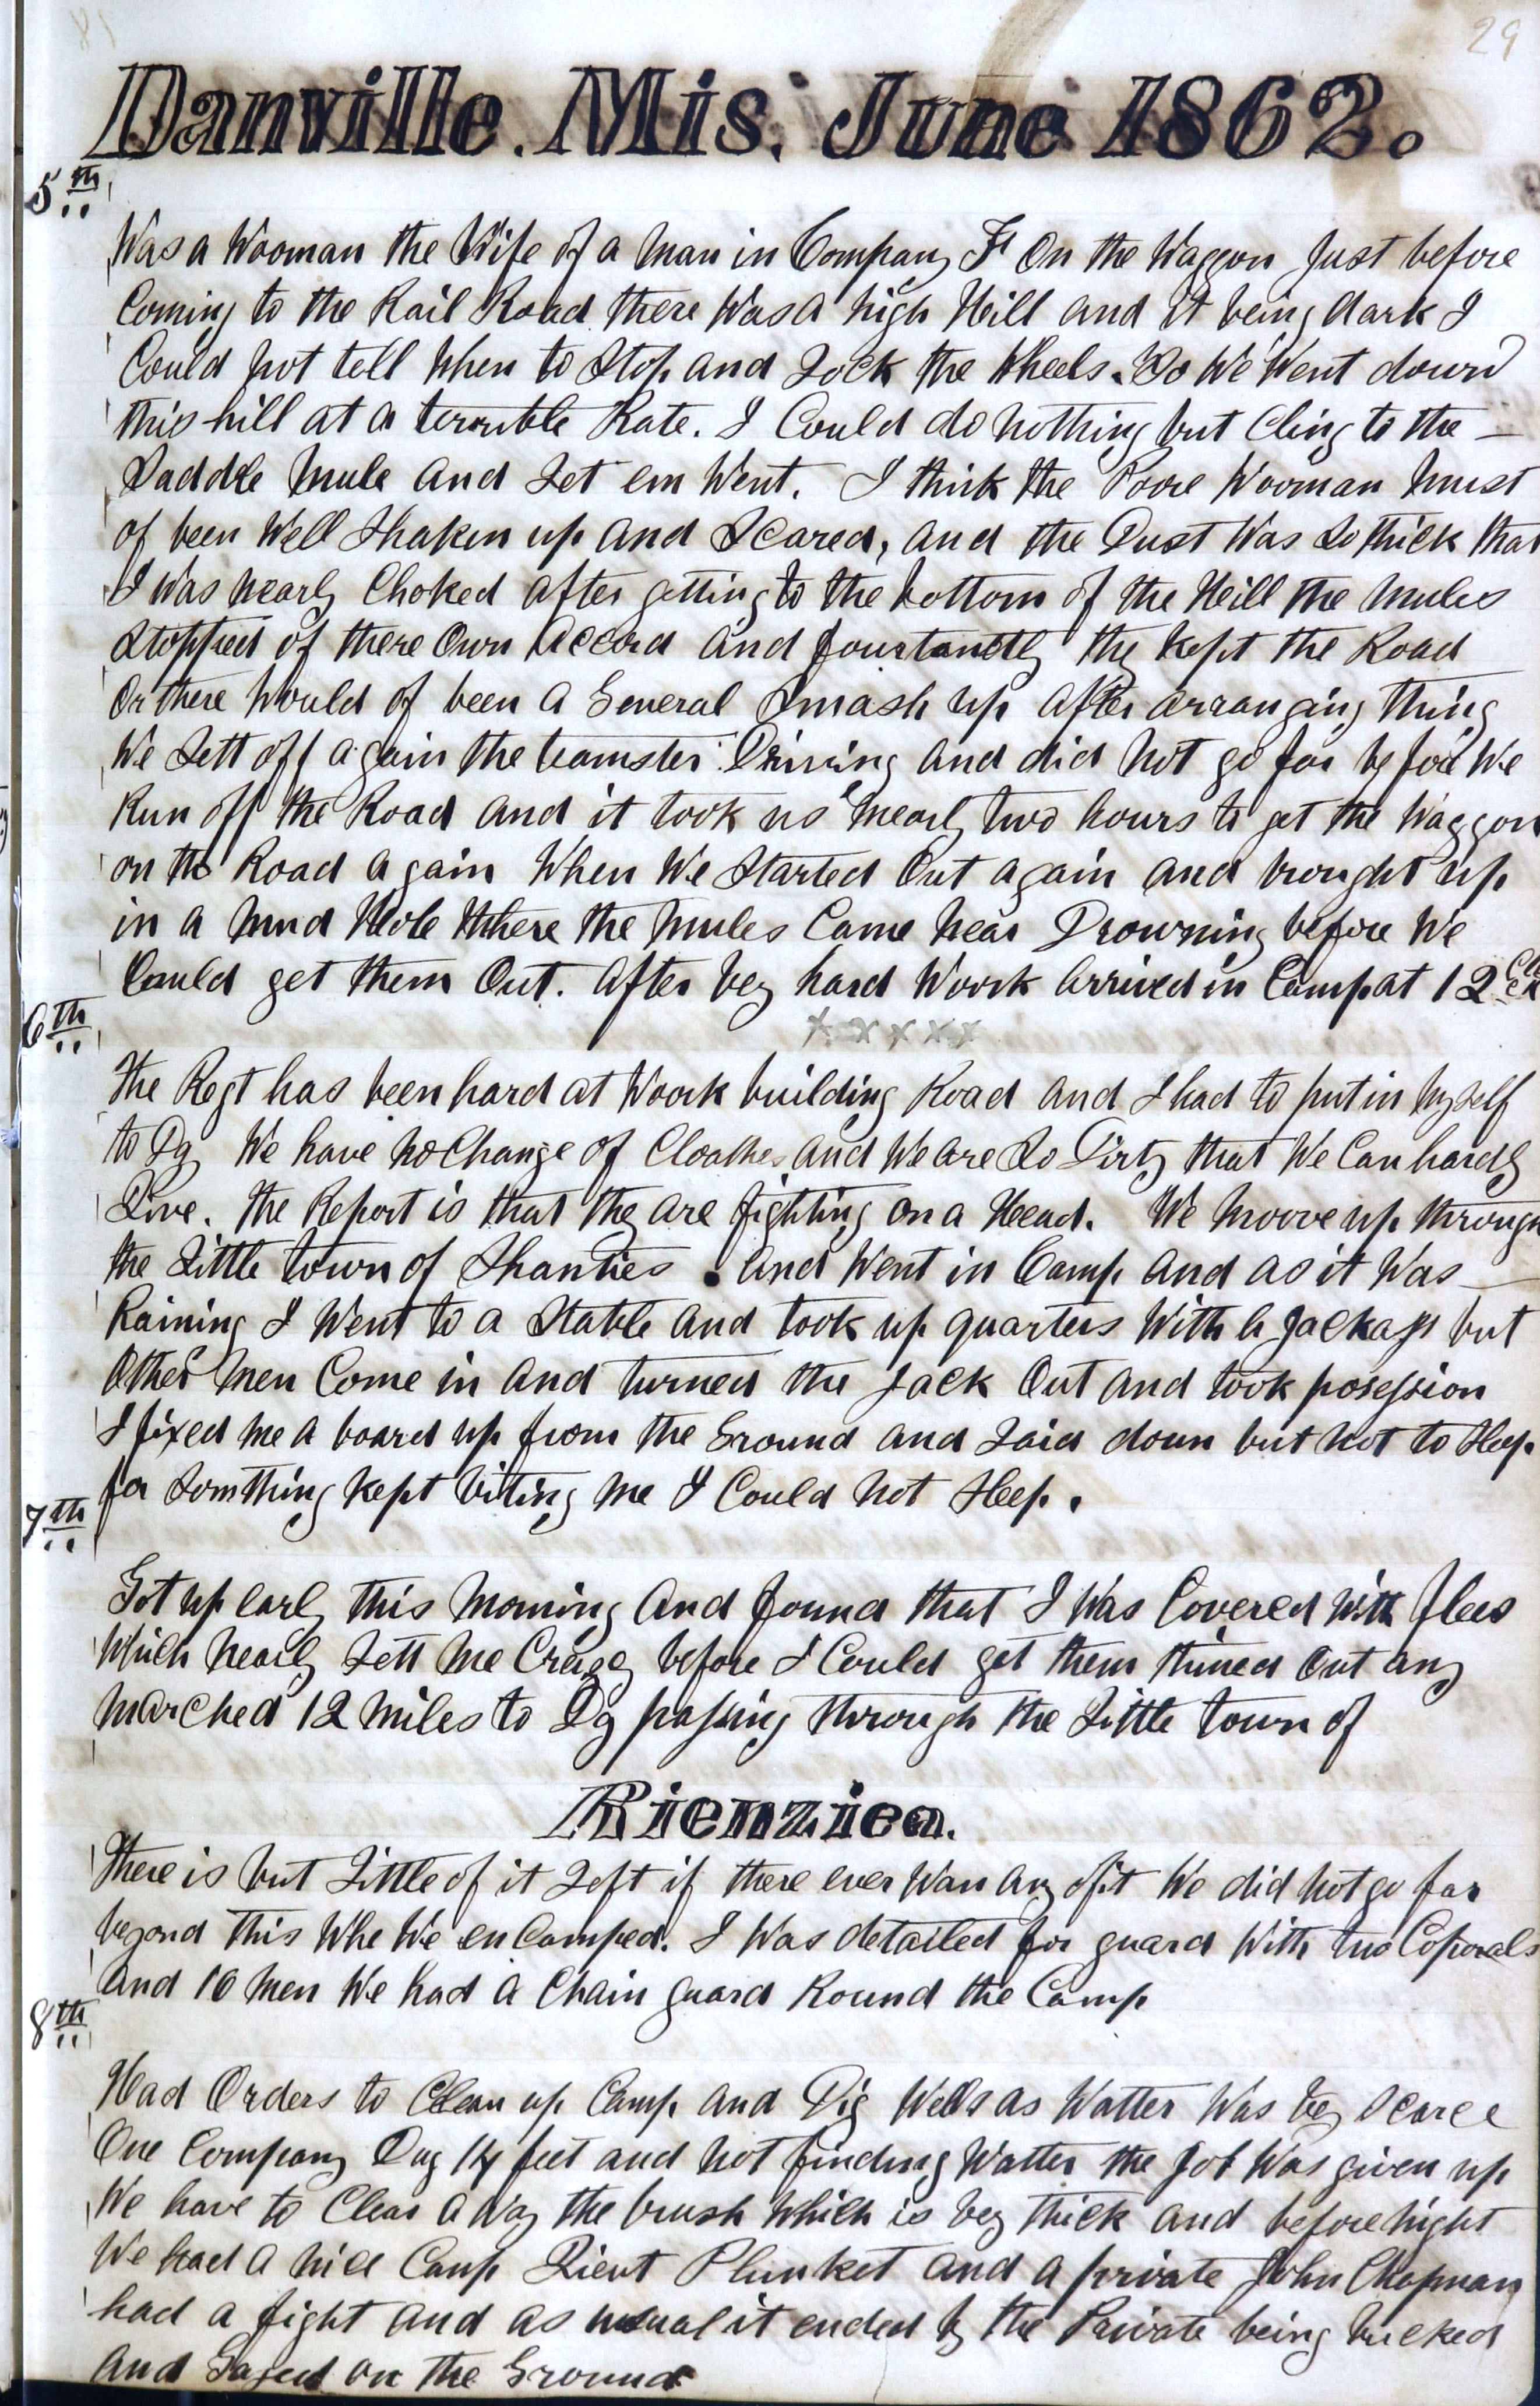 29
Danville. Mis. June 1862.
5th
Was a Wooman the Wife of a Man in Company F On the Waggon Just before
Coming to the Rail Road there Was a high Hill and it being dark I
Could not tell When to Stop and Lock the Wheels. So We Went down
this hill at a terrible Rate. I Could do nothing but Cling to the —
Saddle Mule and Let em Went. I think the Poore Wooman Must
of been Well Shaken up and Scared, and the Dust Was So thick that
I Was nearly Choked after getting to the bottom of the Hill the Mules
Stopped of there Own Accord and fourtanetly they Kept the Road
Or there Would of been a General Smash up After arranging thing
We Sett off again the teamster Driving and did Not go far before We
Run off the Road and it took us nearly two hours to get the Waggon
on the Road again When We Started Out again and brought up
in a Mud Hole Where the Mules Came Near Drowning before We
Could get them Out. After very hard Woork Arrived in Camp at 12
x x x x x
6th
The Regt has been hard at Woork building Road and I had to put in Myself
to Dy We have no Change of Cloathes and We are So Dirty that We Can hardly
Live. the Report is that they are fighting on a Head. We Moove up through
the Little town of Shanties. And Went in Camp and as it Was —
Raining I Went to a Stable and took up quarters With a Jackass but
Other Men Come in and turned the Jack Out and took posession
I fixed me a board up from the Ground and Laid down but not to Sleep
for Somthing kept biting me I Could Not Sleep.
7th
Got up early this Morning And found that I Was Covered With flees
Which Nearly Sett me Creazy before I Could get them thined Out any
Marched 12 Miles to Dy passing through the Little town of
Rienziea.
There is but Little of it Left if there ever Wan any of it We did not go far
beyond this Whe We en Camped. I Was detailed for guard With two Coporals
And 10 Men We had a Chain guard Round the Camp
8th
Had Orders to Clean up Camp and Dig Wells as Watter Was very Scarce
One Company Dug 14 feet and not finding Watter the Job Was given up
We have to Clear a Way the brush Which is very thick and before night
We had a nice Camp Lieut Plunket and a private John Chapman
had a fight and as usual it ended by the Private being bucked
And Gaged on the Ground